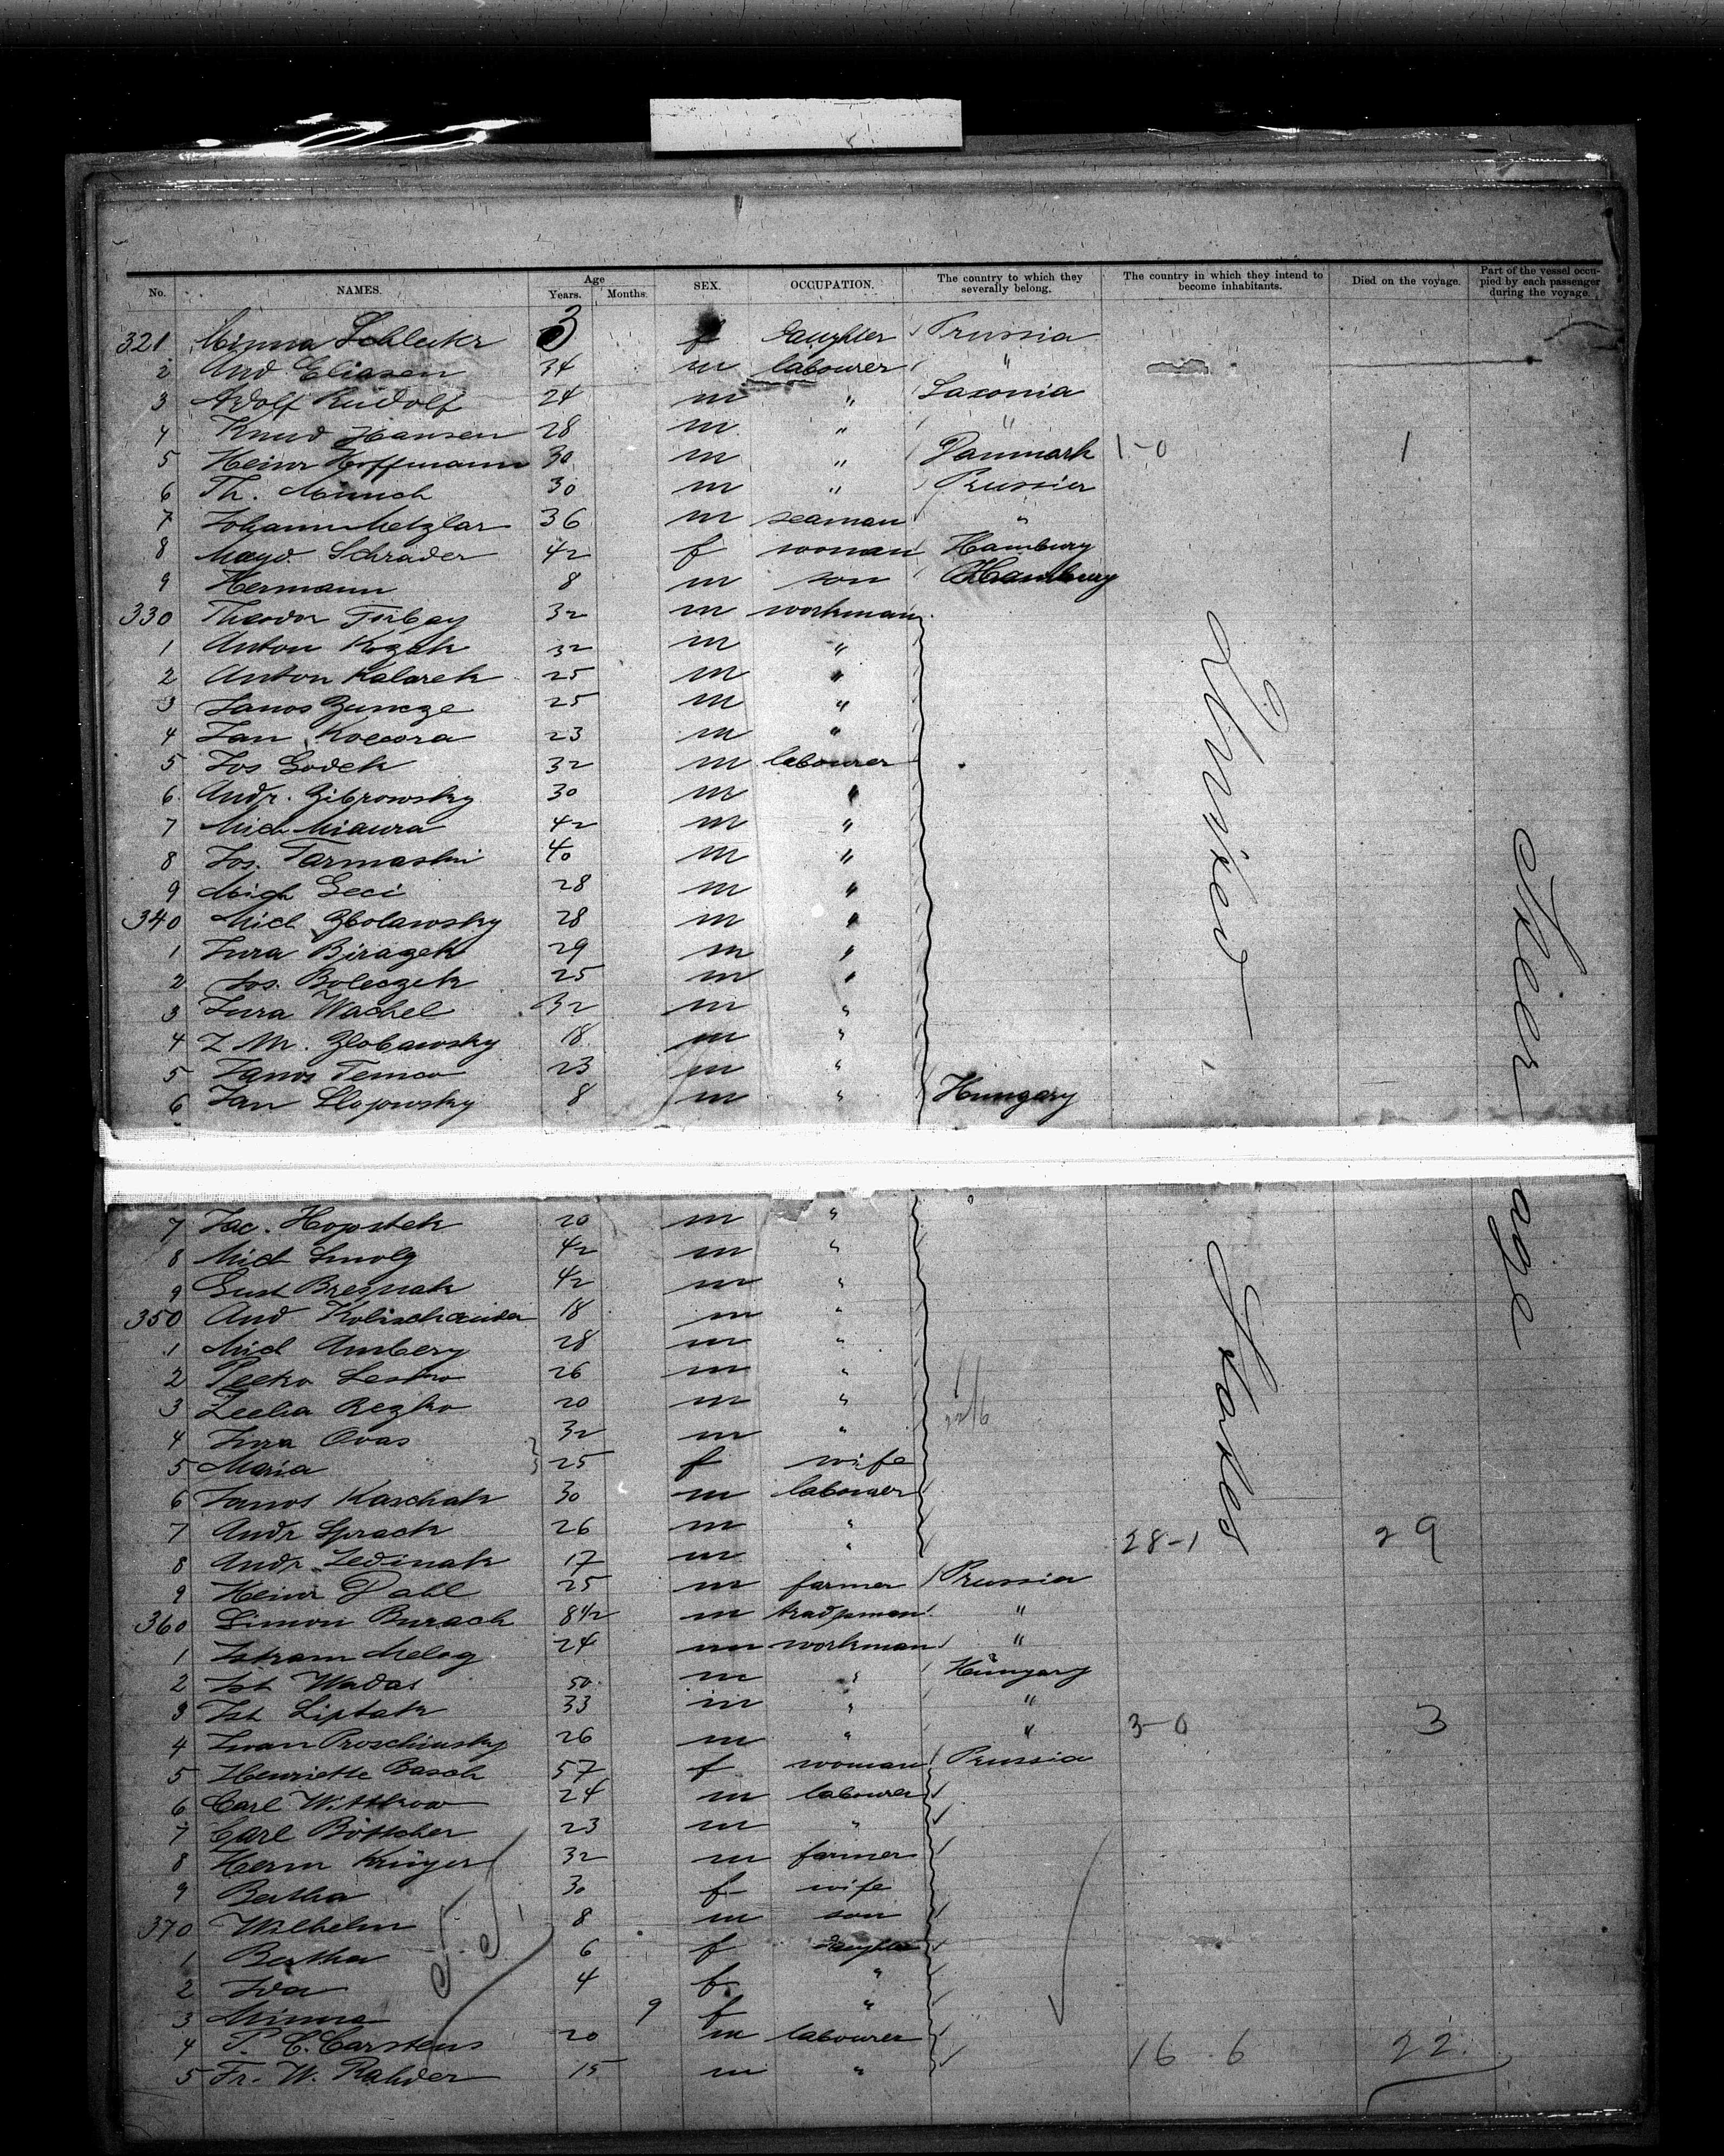 No. NAMES. Age Years. Months. SEX. OCCUPATION. The country to which they severally belong. The country in which they intend to become inhabitants. Died on the voyage. Part of the vessel occupied by each passenger during the voyage.
321 Minna 3 f daughter Prussia
2 And Eliasen 34 m labourer "
3 Adolf Rudolf 24 m " Saxonia
4 Knud Hansen 28 m " "
5 Heinr Hoffmann 30 m " Danmark 1-0 1
6 Th. Münch 30 m " Prussia
7 Johann Metzlar 36 m seaman "
8 Magd. Schrader 42 f woman Hamburg
9 Hermann 8 m son Hamburg
330 Theodor 32 m workman
1 Anton Kozak 32 m "
2 Anton Kalarek 25 m "
3 Janos 25 m "
4 Jan Kocora 23 m "
5 Jos Godek 32 m labourer
6 Andr. Zibrowsky 30 m "
7 Mich Miaura 42 m "
8 Jos. Tarmaski 40 m "
9 Mich Geci 28 m "
340 Mich 28 m "
1 Jura Birazek 29 m "
2 Jos. Boleczek 25 m "
3 Jura Wachel 32 m "
4 J. M. 18 m "
5 Janos Temco 23 m "
6 Jan 8 m " Hungary
United States
Steerage
7 Jac. 20 m "
8 Mich Smoly 42 m "
9 Gust 42 m "
350 And 18 m "
1 Mich Amberg 28 m "
2 26 m "
3 Rezko 20 m "
4 Jura Ovas 32 m "
5 Maria 25 f wife
6 Janos Kaschak 30 m labourer
7 Andr Sprack 26 m "
8 Andr. Jedinak 17 m " 28-1 29
9 Heinr Dahl 25 m farmer Prussia
360 Simon Burack 8 1/2 m "
1 24 m workman "
2 Ist Wadas 50 m " Hungary
3 Ist Liptak 33 m " "
4 Iwan Proschinsky 26 m " " 3-0 3
5 Henriette Basch 57 f woman Prussia
6 Carl Wittkow 24 m labourer
7 Carl Böttcher 23 m "
8 Herm Krüger 32 m farmer
9 Bertha 30 f wife
370 Wilhelm 8 m son
1 Bertha 6 f daughter
2 Ida 4 f "
3 Minna 9 f "
4 P. C. Carstens 20 m labourer
5 Fr. W. Rahder 15 m " 16-6 22